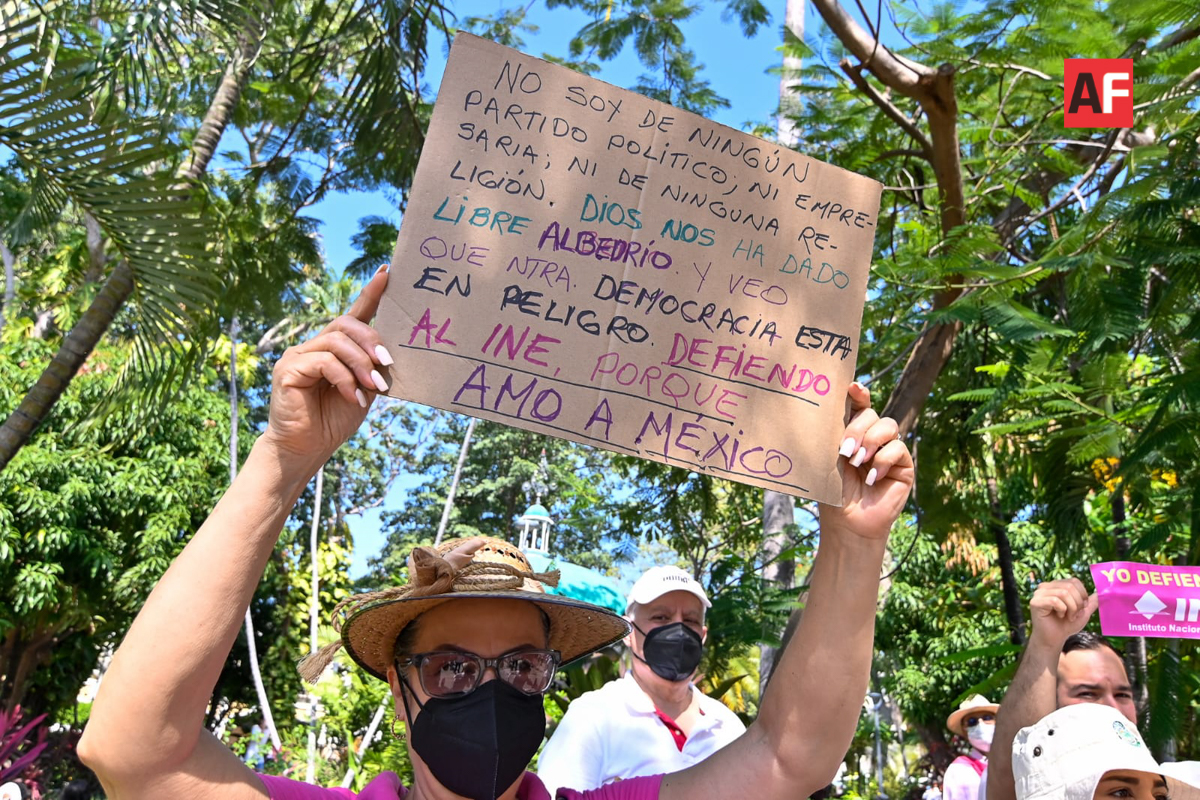 AF
NO SOY DE NINGÚN
PARTIDO POLÍTICO; NI EMPRE-
SARIA; NI DE NINGUNA RE-
LIGIÓN. DIOS NOS HA DADO
LIBRE ALBEDRÍO. Y VEO
QUE NTRA. DEMOCRACIA ESTA
EN PELIGRO. DEFIENDO
AL INE, PORQUE
AMO A MÉXICO
YO DEFIEN
IN
Instituto Nacion